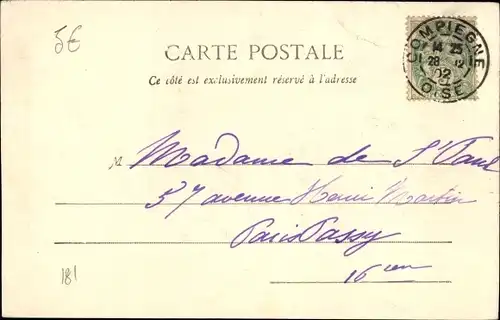 5€
CARTE POSTALE
Ce côté est exclusivement réservé à l'adresse
COMPIEGNE
14 25
28 12
02
OISE
Madame de St Paul
57 avenue Henri Martin
Paris Passy
16em
181